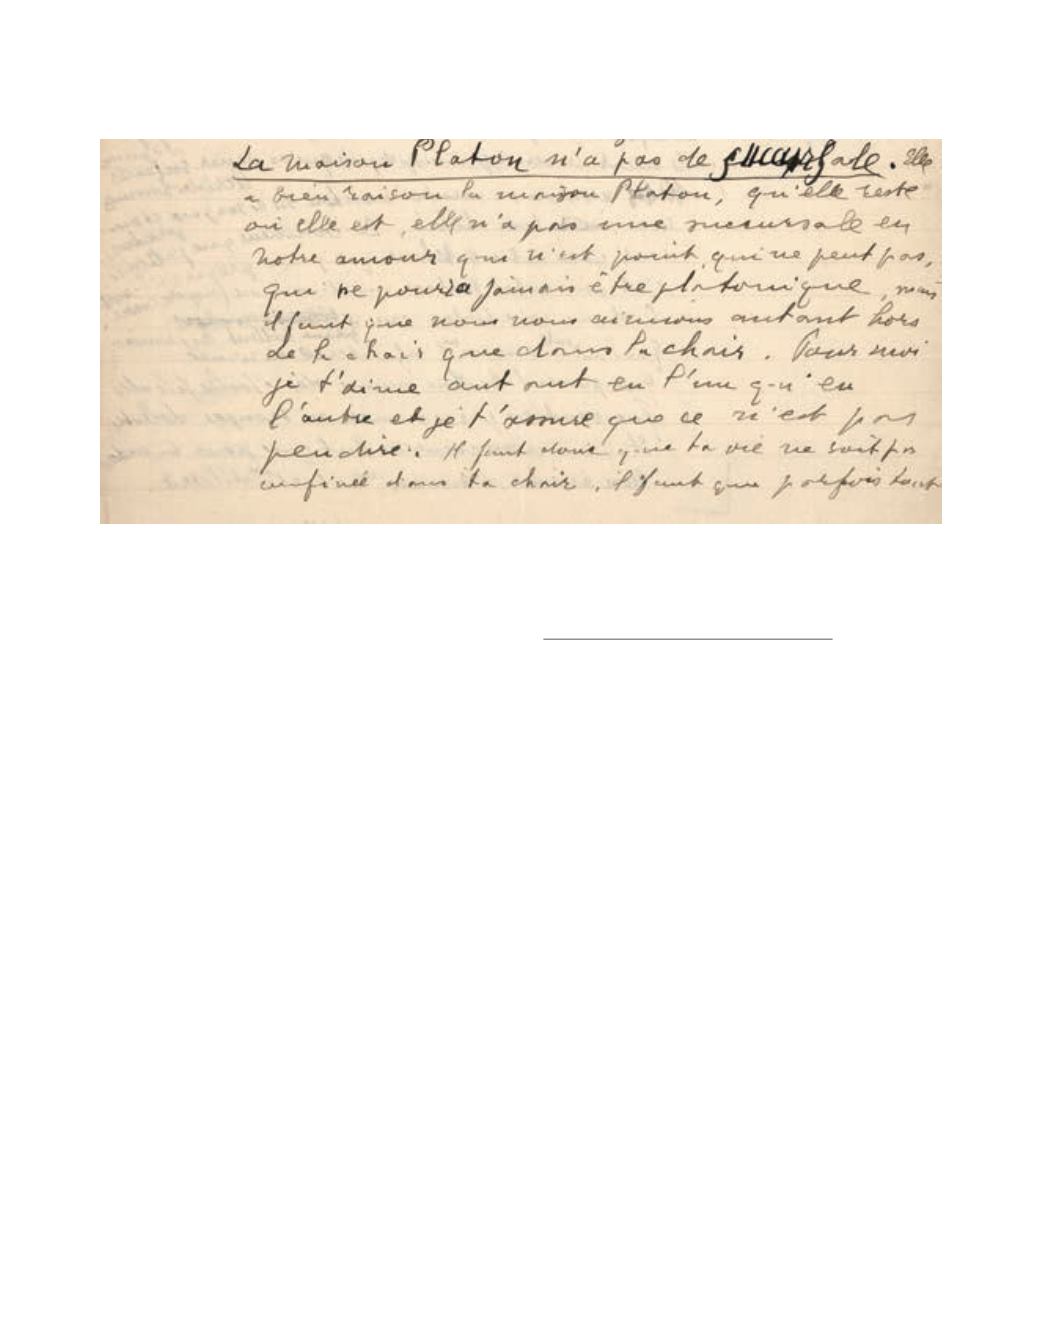 La maison Platon n'a pas de succursale. Elle
a bien raison la maison Platon, qu'elle reste
où elle est, elle n'a pas une succursale en
notre amour qui n'est point, qui ne peut pas,
qui ne pourra jamais être platonique, mais
il faut que nous nous aimions autant hors
de la chair que dans la chair. Pour moi
je t'aime autant en l'un qu'en
l'autre et je t'assure que ce n'est pas
peu dire. Il faut donc que ta vie ne soit pas
confinée dans ta chair, il faut que parfois tout